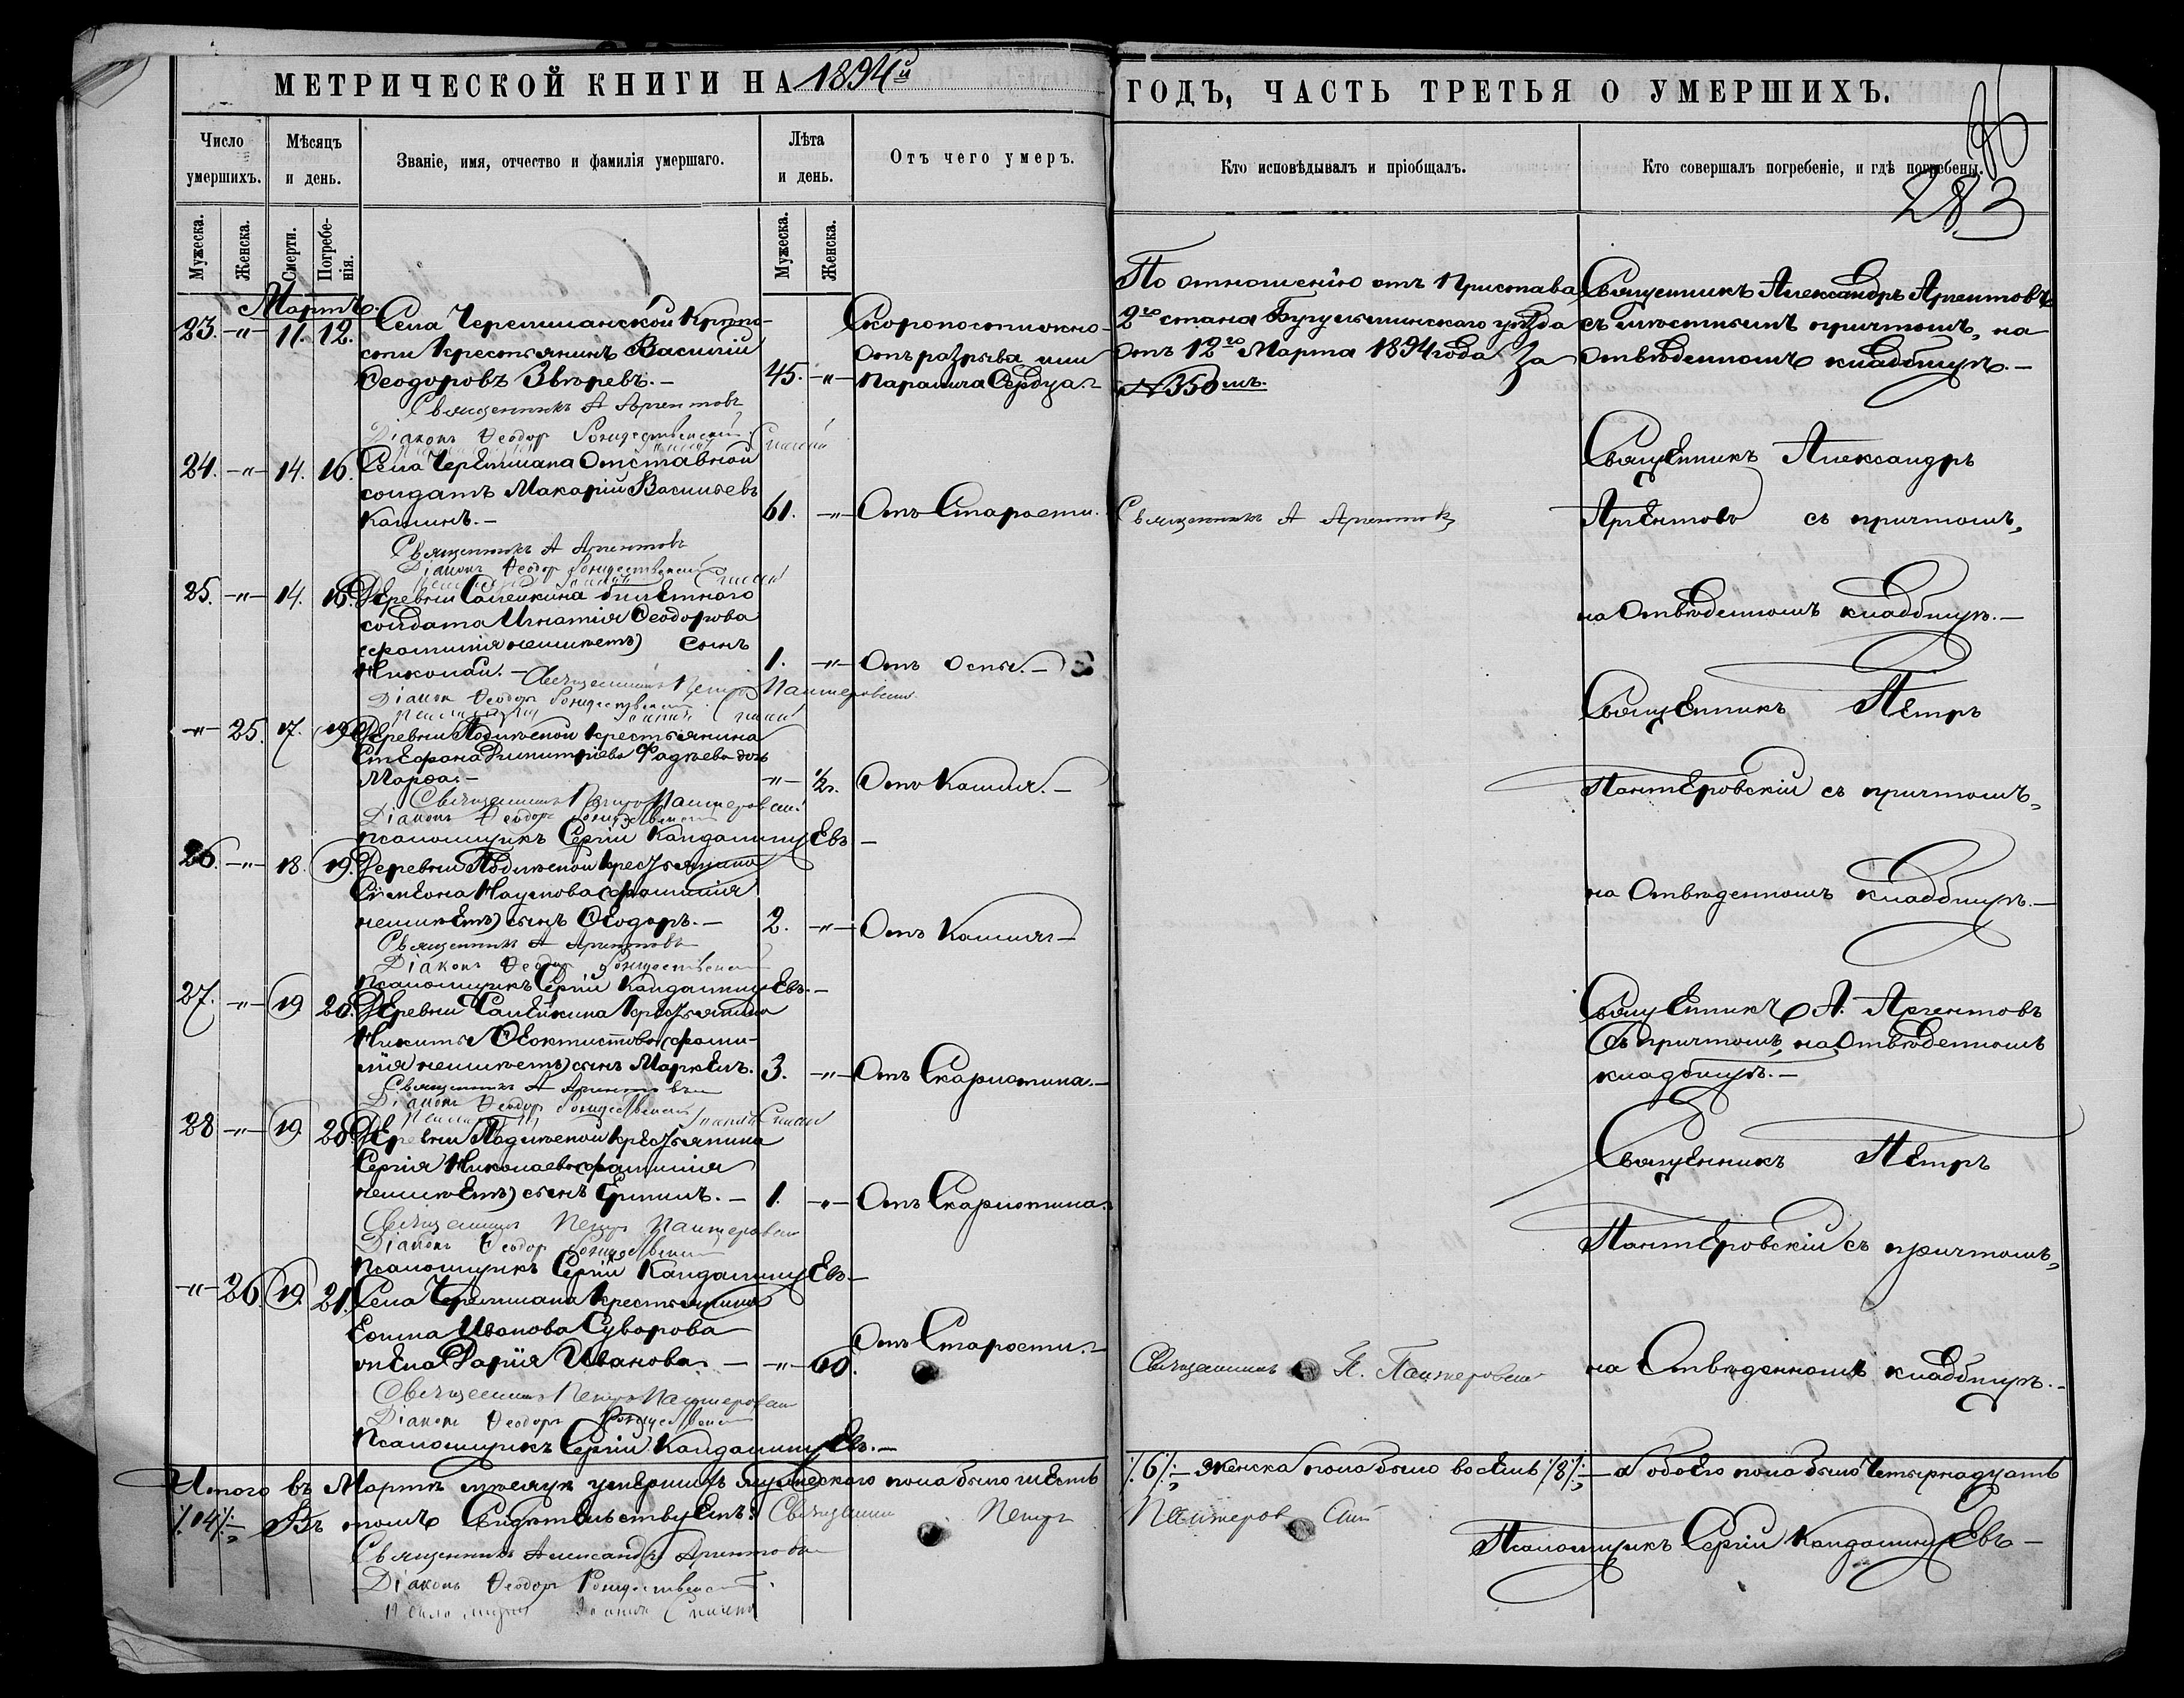 МЕТРИЧЕСКОЙ КНИГИ НА 1894й ГОДЪ, ЧАСТЬ ТРЕТЬЯ О УМЕРШИХЪ.
283
Число умершихъ.
Мѣсяцъ и день.
Званіе, имя, отчество и фамилія умершаго.
Лѣта и день.
Отъ чего умеръ.
Кто исповѣдывалъ и пріобщалъ.
Кто совершалъ погребеніе, и гдѣ погребены.
Мужеска.
Женска.
Смерти.
Погребе-
нія.
Мужеска.
Женска.
Мартъ.
23. -"- 11. 12. Села Черемшанской Крѣпо-
сти крестьянинъ Василій
Ѳеодоровъ Звѣревъ.- 45. -"-
Скоропостижно-
отъ разрыва или
паралича сердца-
По отношенію отъ Пристава
2го стана Бугульминскаго уѣзда
отъ 12го Марта 1894 года За
№350мъ.
Священникъ Александръ Аргентовъ
съ мѣстнымъ причтомъ, на
отвѣденномъ кладбищѣ.-
Священникъ А Аргентовъ
Діаконъ Ѳеодоръ Рождественскій
24. -"- 14. 16. Села Черемшана Отставной
солдатъ Макарій Васильевъ
Калинъ.- 61. -"- Отъ Старости.
Священникъ А Аргентовъ
Священникъ Александръ
Аргентовъ съ причтомъ,
на отвѣденномъ кладбищѣ.-
Священникъ А Аргентовъ
Діаконъ Ѳеодоръ Рождественскій
25. -"- 14. 16. Деревни Салейкина билетнаго
солдата Игнатія Ѳеодорова
(фамиліи неимѣетъ) сынъ
Николай.- 1. -"- Отъ Оспы.-
Священникъ Петръ Пантеровскій
Діаконъ Ѳеодоръ Рождественскій
Священникъ Петръ
Пантеровскій съ причтомъ,
на отвѣденномъ кладбищѣ.-
-"- 25. 17. 19. Деревни Подлѣсной крестьянина
Стефана Димитріева Фадѣева дочь
Марѳа.- -"- ½. Отъ Кашля.-
Священникъ Петръ Пантеровскій
Діаконъ Ѳеодоръ Рождественскій
Псаломщикъ Сергій Кандалинцевъ-
26. -"- 18. 19. Деревни Подлѣсной крестьянина
Сѵмеона Наумова (фамиліи
неимѣетъ) сынъ Ѳеодоръ.- 2. -"- Отъ Кашля-
Священникъ А Аргентовъ
Діаконъ Ѳеодоръ Рождественскій
Псаломщикъ Сергій Кандалинцевъ.-
27. -"- 19. 20. Деревни Салейкина крестьянина
Никиты Ѳеоктистова (фами-
лія неимѣетъ) сынъ Маркелъ. 3. -"- Отъ Скарлатина.-
Священникъ А. Аргентовъ
съ причтомъ, на Отвѣденномъ
кладбищѣ.-
Священникъ А Аргентовъ
Діаконъ Ѳеодоръ Рождественскій
28 -"- 19. 20. Деревни Подлѣсной крестьянина
Сергія Николаева (фамиліи
неимѣетъ) сынъ Ефимъ.- 1. -"- Отъ Скарлатина.
Священникъ Петръ Пантеровскій
Діаконъ Ѳеодоръ Рождественскій
Псаломщикъ Сергій Кандалинцевъ-
Священникъ Петръ
Пантеровскій съ причтомъ,
на Отвѣденномъ кладбищѣ.-
-"- 26. 19. 21. Села Черемшана крестьянина
Іоанна Иванова Суворова
жена Дарія Иванова.- -"- 60. Отъ Старости.-
Священникъ П. Пантеровскій
Священникъ Петръ Пантеровскій
Діаконъ Ѳеодоръ Рождественскій
Псаломщикъ Сергій Кандалинцевъ.-
Итого въ Мартѣ мѣсяцѣ умершихъ мужескаго пола было шесть
/:6:/- Женска пола было восемь /:8:/- а обоего пола было Четырнадцать
/:14:/- Въ томъ Свидѣтельствуемъ: Священникъ Петръ Пантеровскій
Священникъ Александръ Аргентовъ
Псаломщикъ Сергій Кандалинцевъ-
Діаконъ Ѳеодоръ Рождественскій